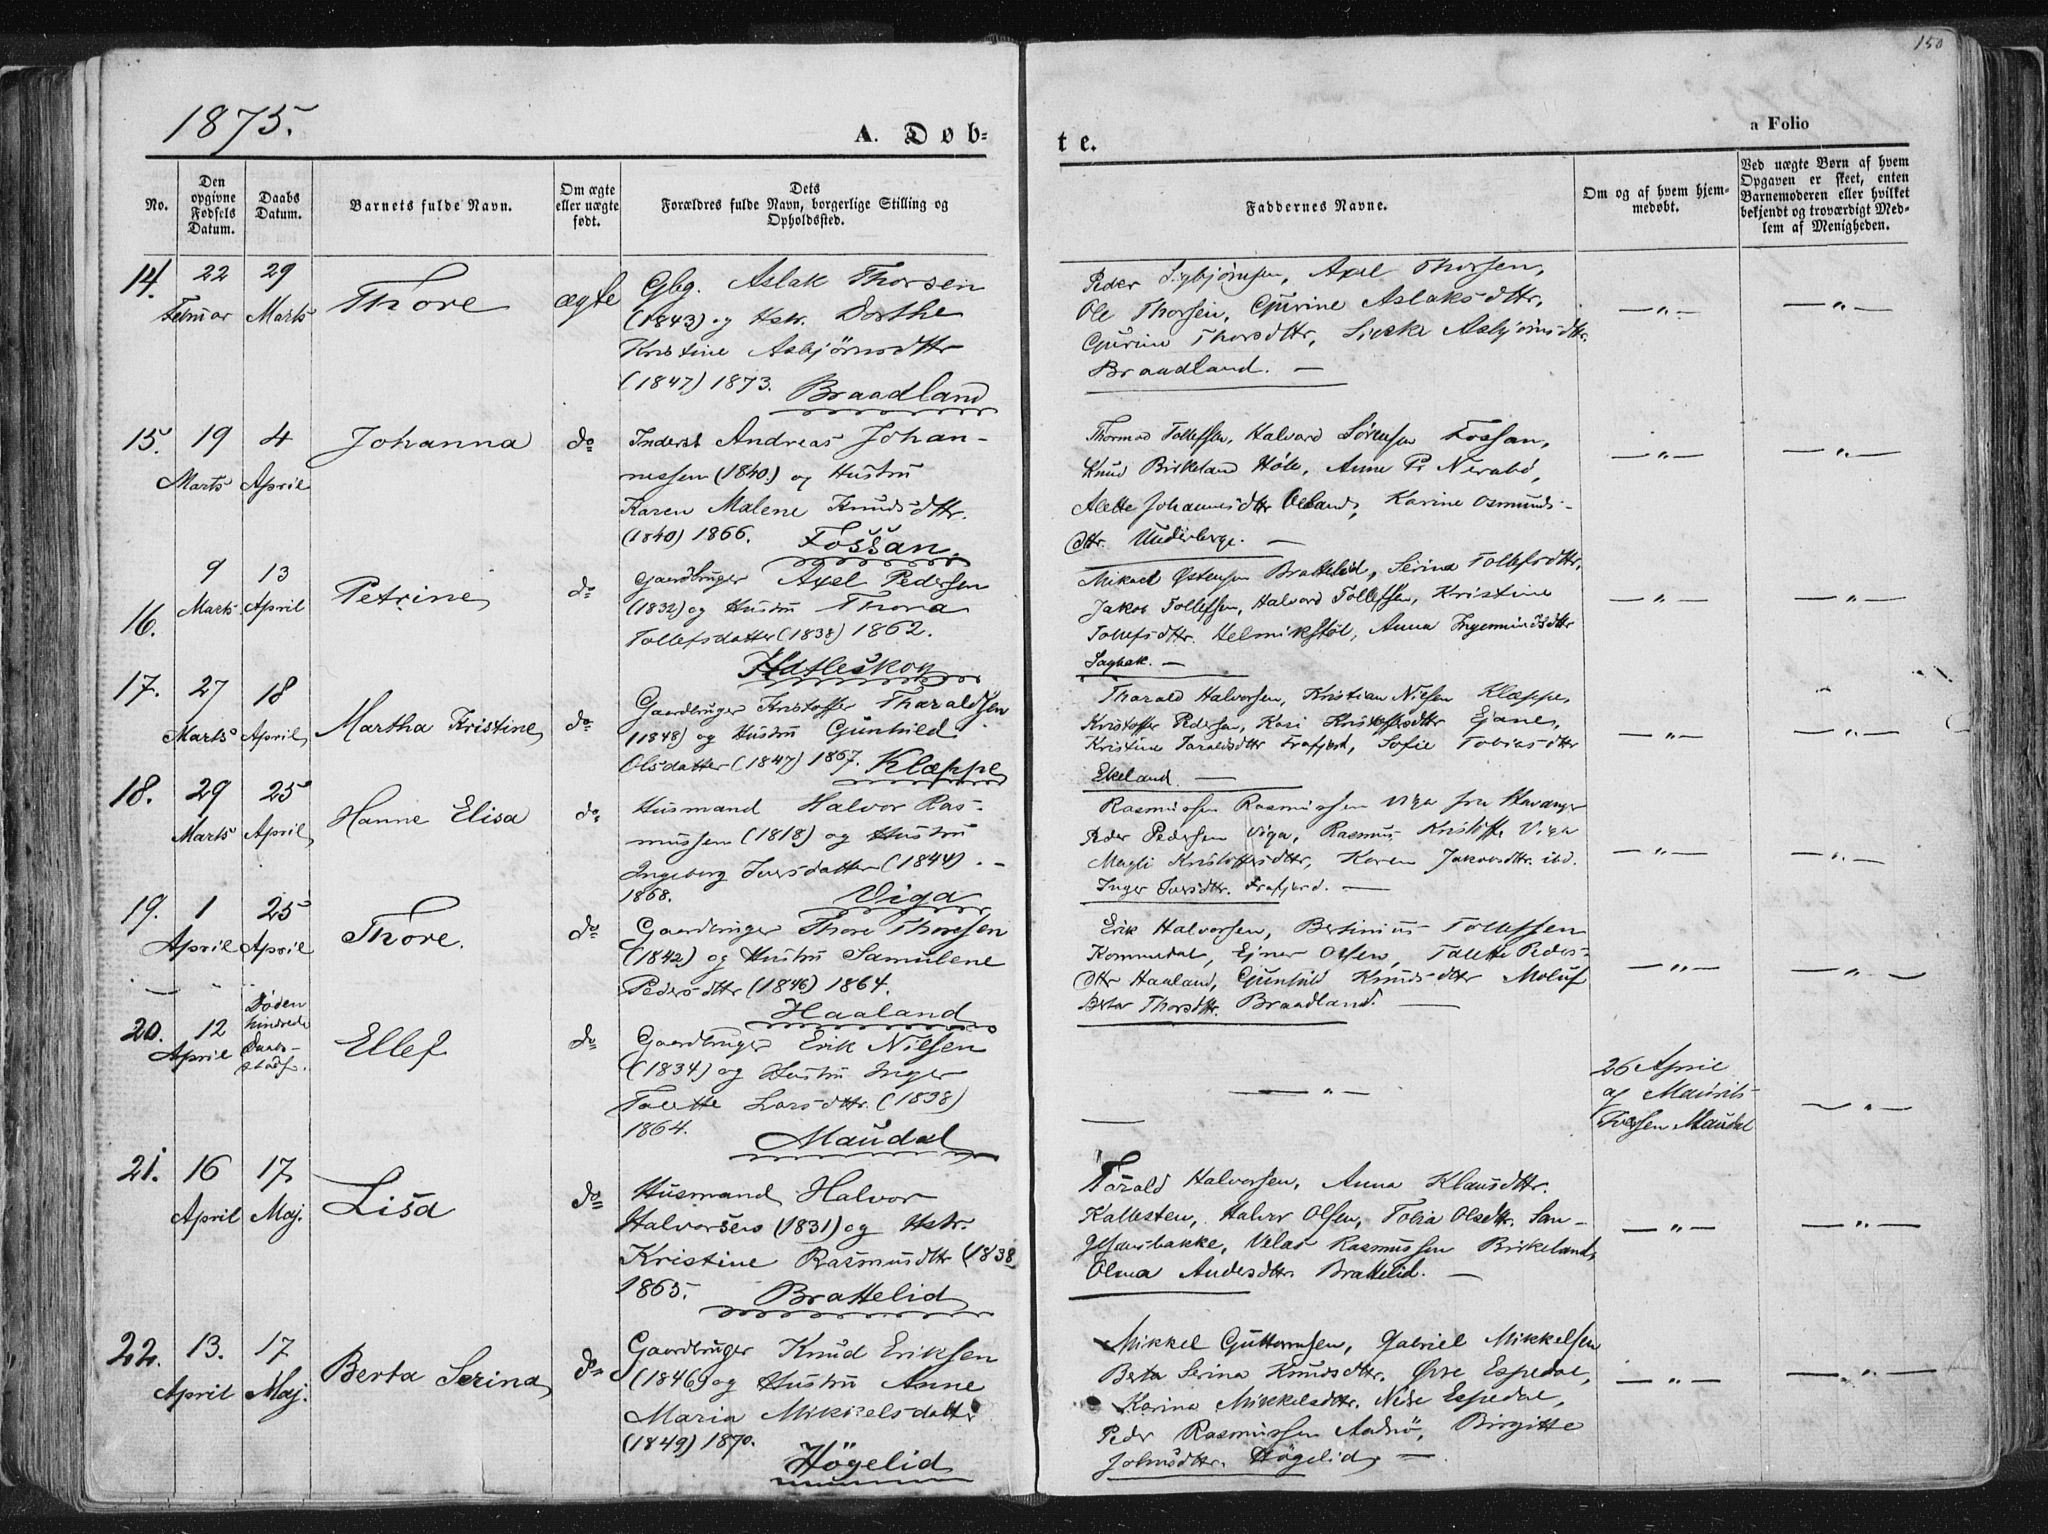 150
1875.
A. Døb-
te.
a Folio
No.
Den
opgivne
Fødsels
Datum.
Daabs
Datum.
Barnets fulde Navn.
Om ægte
eller uægte
født.
Dets
Forældres fulde Navn, borgerlige Stilling og
Opholdssted.
Faddernes Navne.
Om og af hvem hjem-
medøbt.
Ved uægte Børn af hvem
Opgaven er skeet, enten
Barnemoderen eller hvilket
bekjendt og troværdigt Med-
lem af Menigheden.
14.
22
Februar
29
Marts
Thore
ægte
Gbg. Aslak Thorsen
(1843) og Hstr. Dorthe
Kristine Asbjörnsdttr
(1847) 1873. Braadland
Peder Sigbjörnsen, Axel Thorsen,
Ole Thorsen, Gurine Aslaksdttr,
Gurine Thorsdttr, Asbjörnsdttr.
Braadland. —
— " —
— " —
15.
19
Marts
4
April
Johanna
do
Inderst Andreas Johan-
nessen (1840) og Hustru
Karen Malene Knudsdttr.
(1840) 1866. Fossan.
Thormod Tollefsen, Halvard Sörensen Fossan,
Knud Birkeland Höle, Anne P. Nerabö,
Alette Johannesdttr Osmunds-
dttr. Underberge. —
— " —
— " —
16.
9
Marts
13
April
Petrine
do
Gaardbruger Axel Pedersen
(1832) og Hustru Thora
Tollefsdatter (1838) 1862.
Hatleskog
Mikael Østensen Brattelid, Serina Tollefsdttr,
Jakob Tollefsen, Halvard Tollefsen, Kristine
Tollefsdttr. Helmikstöl, Anna Ingemundsdttr
Sagbak. —
— " —
— " —
17.
27
Marts
18
April
Martha Kristine
do
Gaardbruger Kristoffer Tharaldsen
(1848) og Hustru Gunhild
Olsdatter (1847) 1867. Klæppe
Tharald Halvorsen, Kristian Nielsen Klæppe,
Kristoffer Pedersen, Kari Kristoffersdttr Ejane,
Kristine Taraldsdttr Frafjord, Sofie Tobiasdttr
Ekeland —
— " —
— " —
18.
29
Marts
25
April
Hanne Elisa
do
Husmand Halvor Ras-
mussen (1818) og Hustru
Ingeborg Iversdatter (1844). —
1868. Viga
Rasmussen Rasmussen Viga fra Stavanger
Peder Pedersen Viga, Rasmus Kristoffer Viga
Magli Kristoffersdttr, Karen Jakobsdttr. ibd.
Inger Iversdttr. Frafjord. —
— " —
— " —
19.
1
April
25
April
Thore.
do
Gaardbruger Thore Thoresen
(1842) og Hustru Samulene
Pedersdttr (1846) 1864.
Haaland
Erik Halvorsen, Bertinius Tollefsen
Kommedal, Ejner Olsen, Talette Peders-
dttr Haaland, Gunhild Knudsdttr Moluf
Berta Thorsdttr. Braadland. —
— " —
— " —
20.
12
April
Døden
hindrede
Daabs-
stadf.
Ellef
do
Gaardbruger Erik Nilsen
(1834) og Hustru Inger
Talette Larsdttr. (1838)
1864. Maudal
— " —
26 April
af Maurits
Maudal
— " —
21.
16
April
17
Maj.
Lisa
do
Husmand Halvor
Halvorsen (1831) og Hstr.
Kristine Rasmusdttr (1838
1865. Brattelid
Torald Halvorsen, Anna Klausdttr.
Kallesten, Halvor Olsen, Tobia Olsdttr. San-
Velas Rasmussen Birkeland,
Olma Andersdttr. Brattelid. —
— " —
— " —
22.
13.
April
17
Maj.
Berta Serina
do
Gaardbruger Knud Eriksen
(1846) og Hustru Anne
Maria Mikkelsdatter
(1849) 1870.
Högelid
Mikkel Guttormsen, Gabriel Mikkelsen
Berta Serina Knudsdttr. Øvre Espedal,
Karina Mikkelsdttr. Nedre Espedal,
Peder Rasmussen Birgitte
Johnsdttr. Högelid. —
— " —
— " —